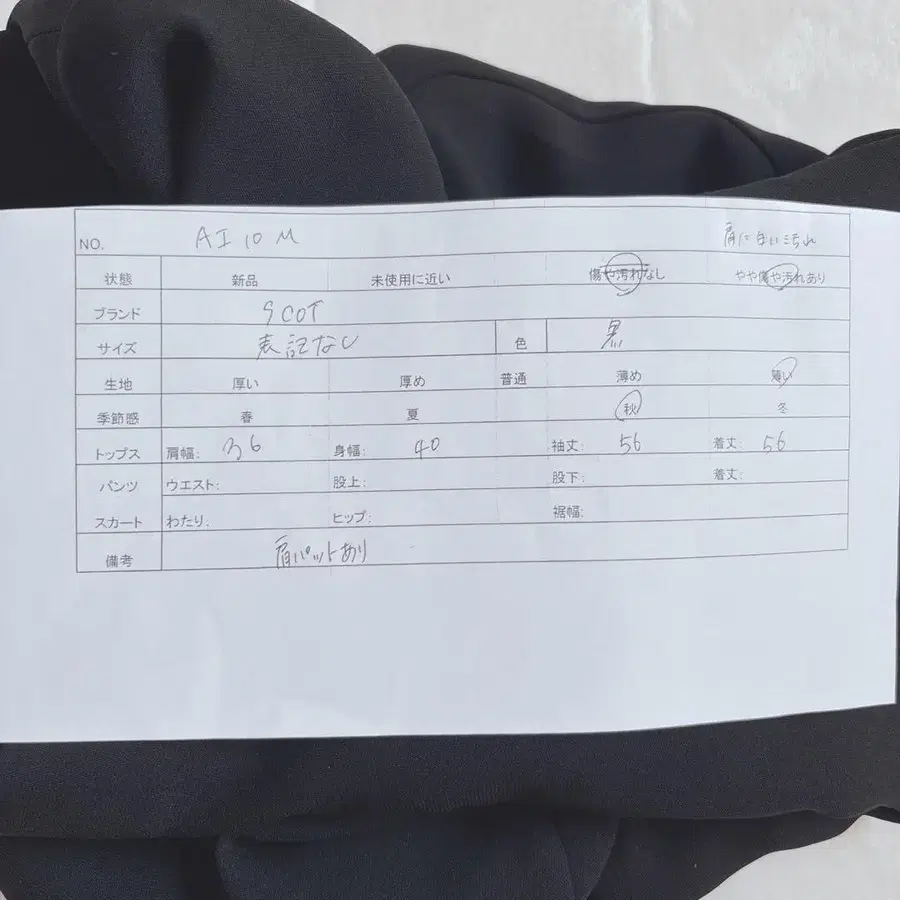 NO. AI 10 M 肩に白い汚れ
状態 新品 未使用に近い 傷や汚れなし やや傷や汚れあり
ブランド SCOT
サイズ 表記なし 色 黒
生地 厚い 厚め 普通 薄め 薄い
季節感 春 夏 秋 冬
トップス 肩幅: 36 身幅: 40 袖丈: 56 着丈: 56
パンツ ウエスト: 股上: 股下: 着丈:
スカート わたり: ヒップ: 裾幅:
備考 肩パットあり